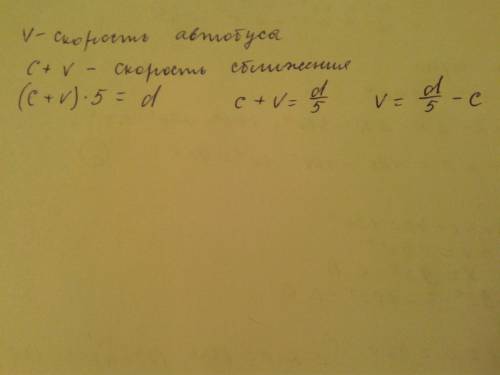 v - скорость автобуса
c + v - скорость сближения
(c + v) · 5 = d c + v = d/5 v = d/5 - c